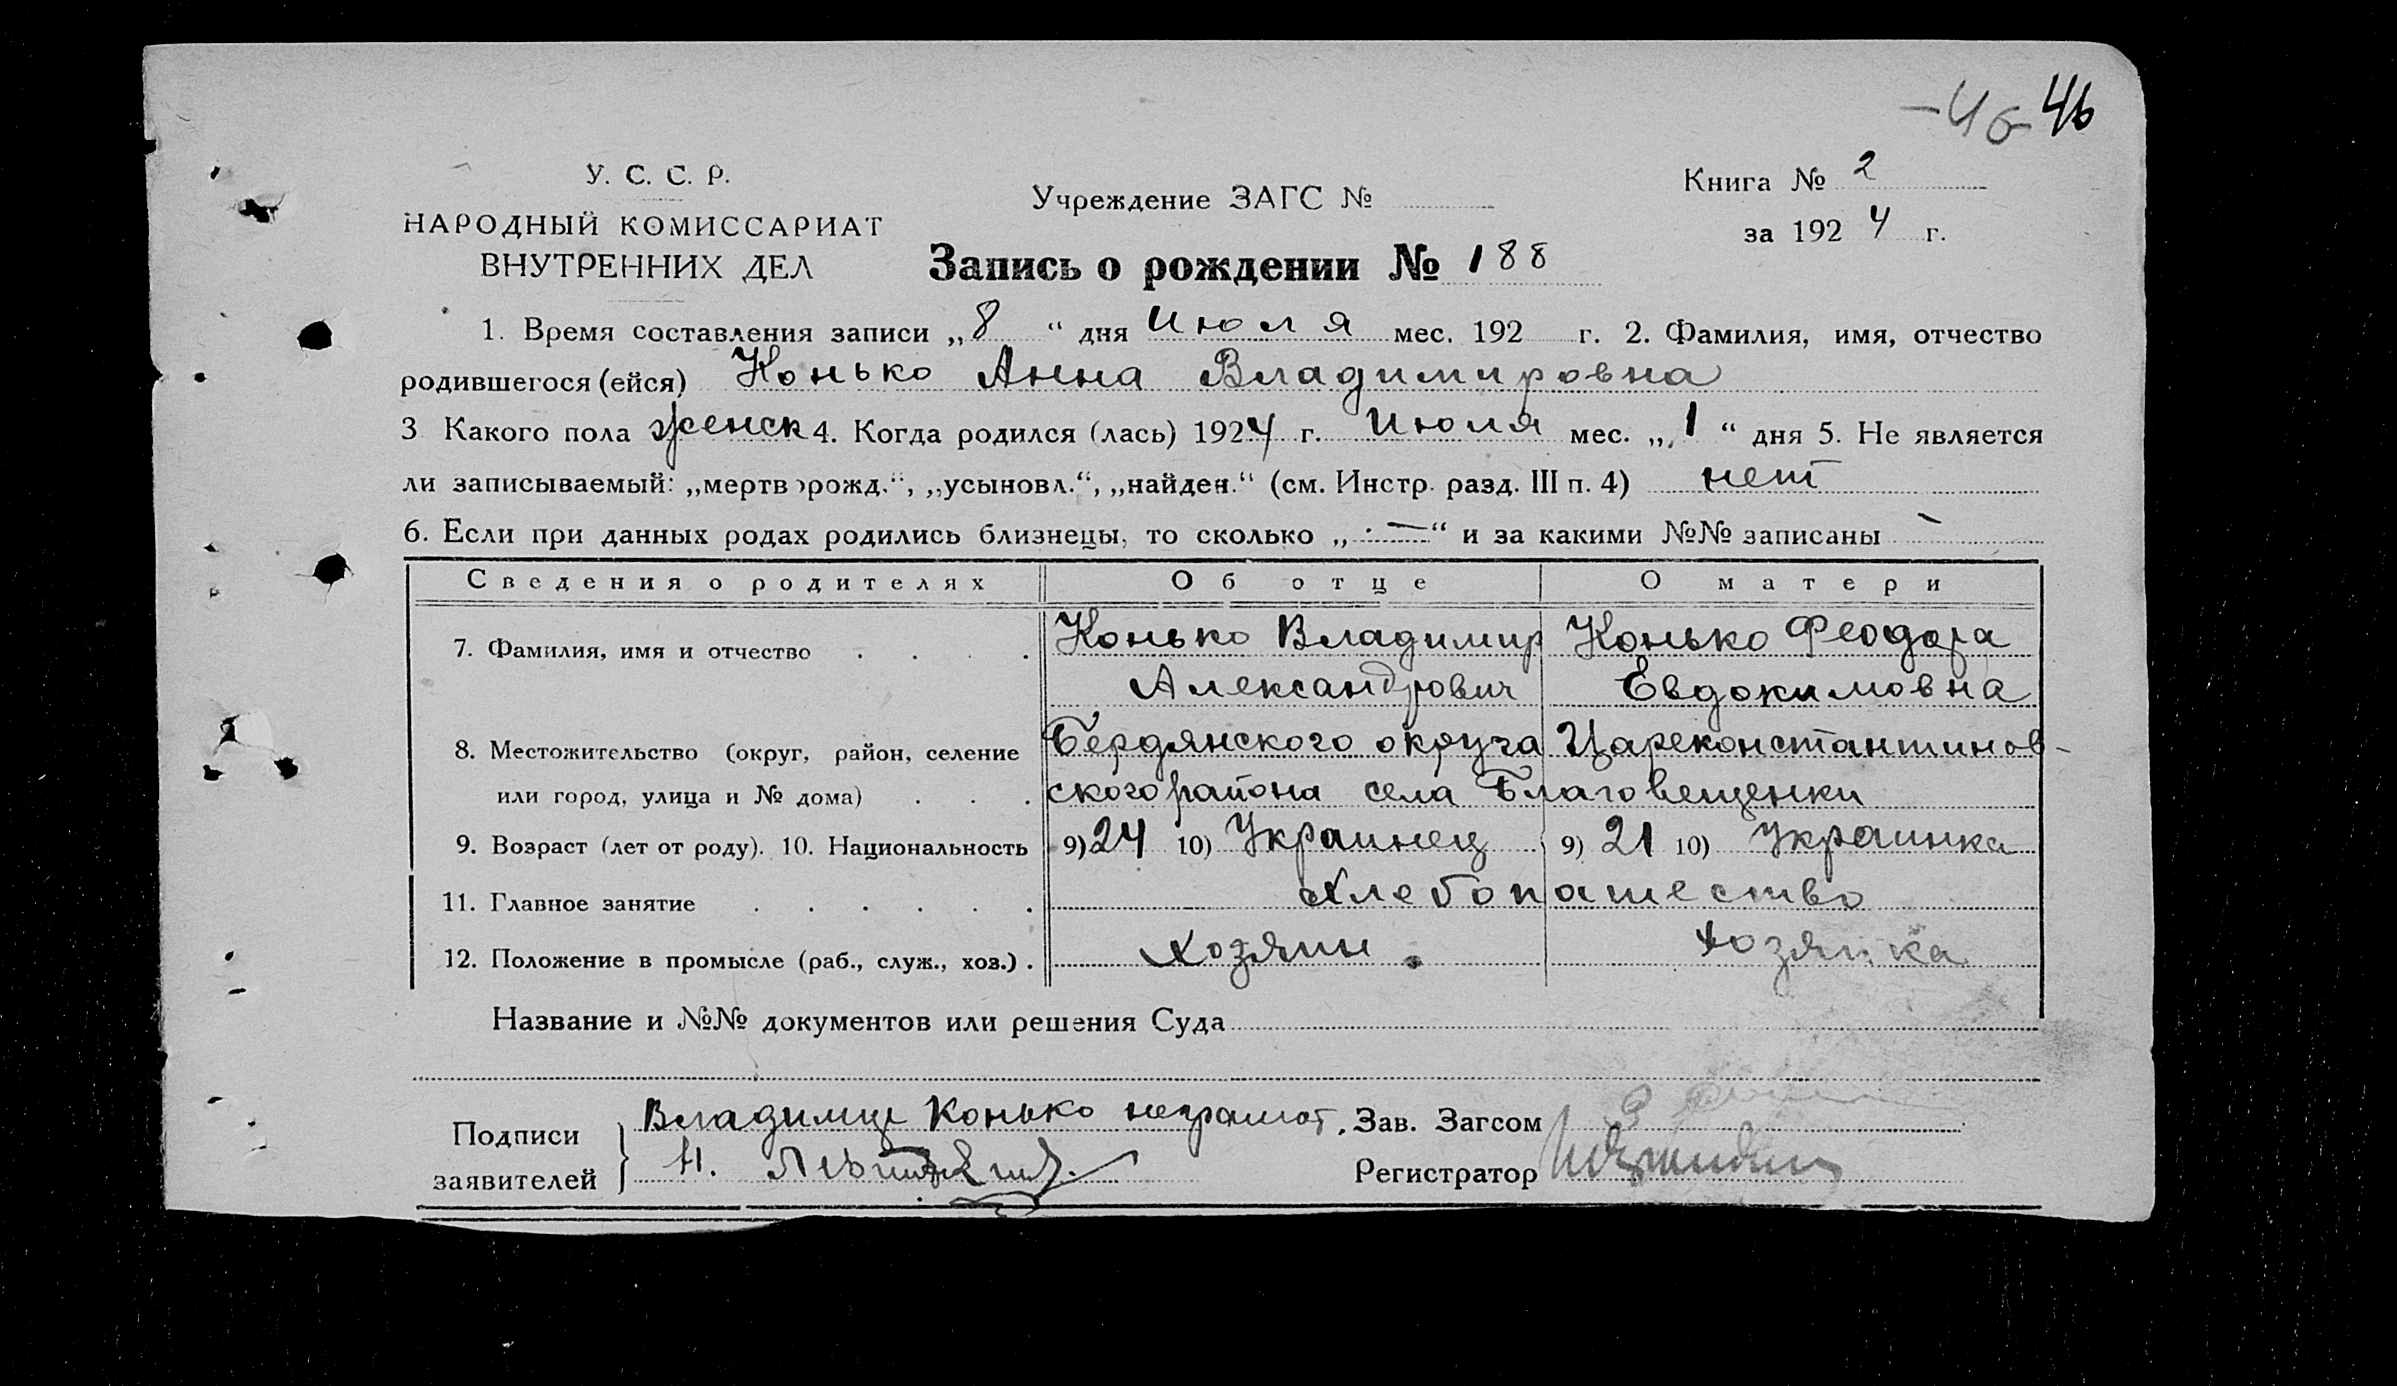 -46- 46
У. С. С. Р.
НАРОДНЫЙ КОМИССАРИАТ
ВНУТРЕННИХ ДЕЛ
Учреждение ЗАГС №
Книга № 2
за 1924 г.
Запись о рождении № 188
1. Время составления записи „8“ дня Июля мес. 192 г. 2. Фамилия, имя, отчество
родившегося (ейся) Конько Анна Владимировна
3 Какого пола женск 4. Когда родился (лась) 1924 г. Июля мес. „1“ дня 5. Не является
ли записываемый: „мертворожд.“, „усыновл.“, „найден.“ (см. Инстр. разд. III п. 4) нет
6. Если при данных родах родились близнецы, то сколько „—“ и за какими №№ записаны —
Сведения о родителях Об отце О матери
7. Фамилия, имя и отчество . . . . Конько Владимир Конько Феодора
Александрович Евдокимовна
8. Местожительство (округ, район, селение Бердянского округа Цареконстантинов-
или город, улица и № дома) . . . ского района села Благовещенки
9. Возраст (лет от роду). 10. Национальность 9) 24 10) Украинец 9) 21 10) Украинка
11. Главное занятие . . . . . . Хлебопашество
12. Положение в промысле (раб., служ., хоз.) . Хозяин Хозяйка
Название и №№ документов или решения Суда
Подписи
заявителей
Владимир Конько неграмот.
Н.
Зав. Загсом
Регистратор